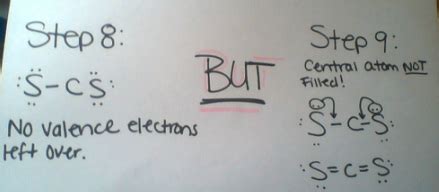 Step 8:
:S-CS:
No valence electrons
left over.
BUT
Step 9:
Central atom NOT
filled!
:S-C-S:
:S=C=S: